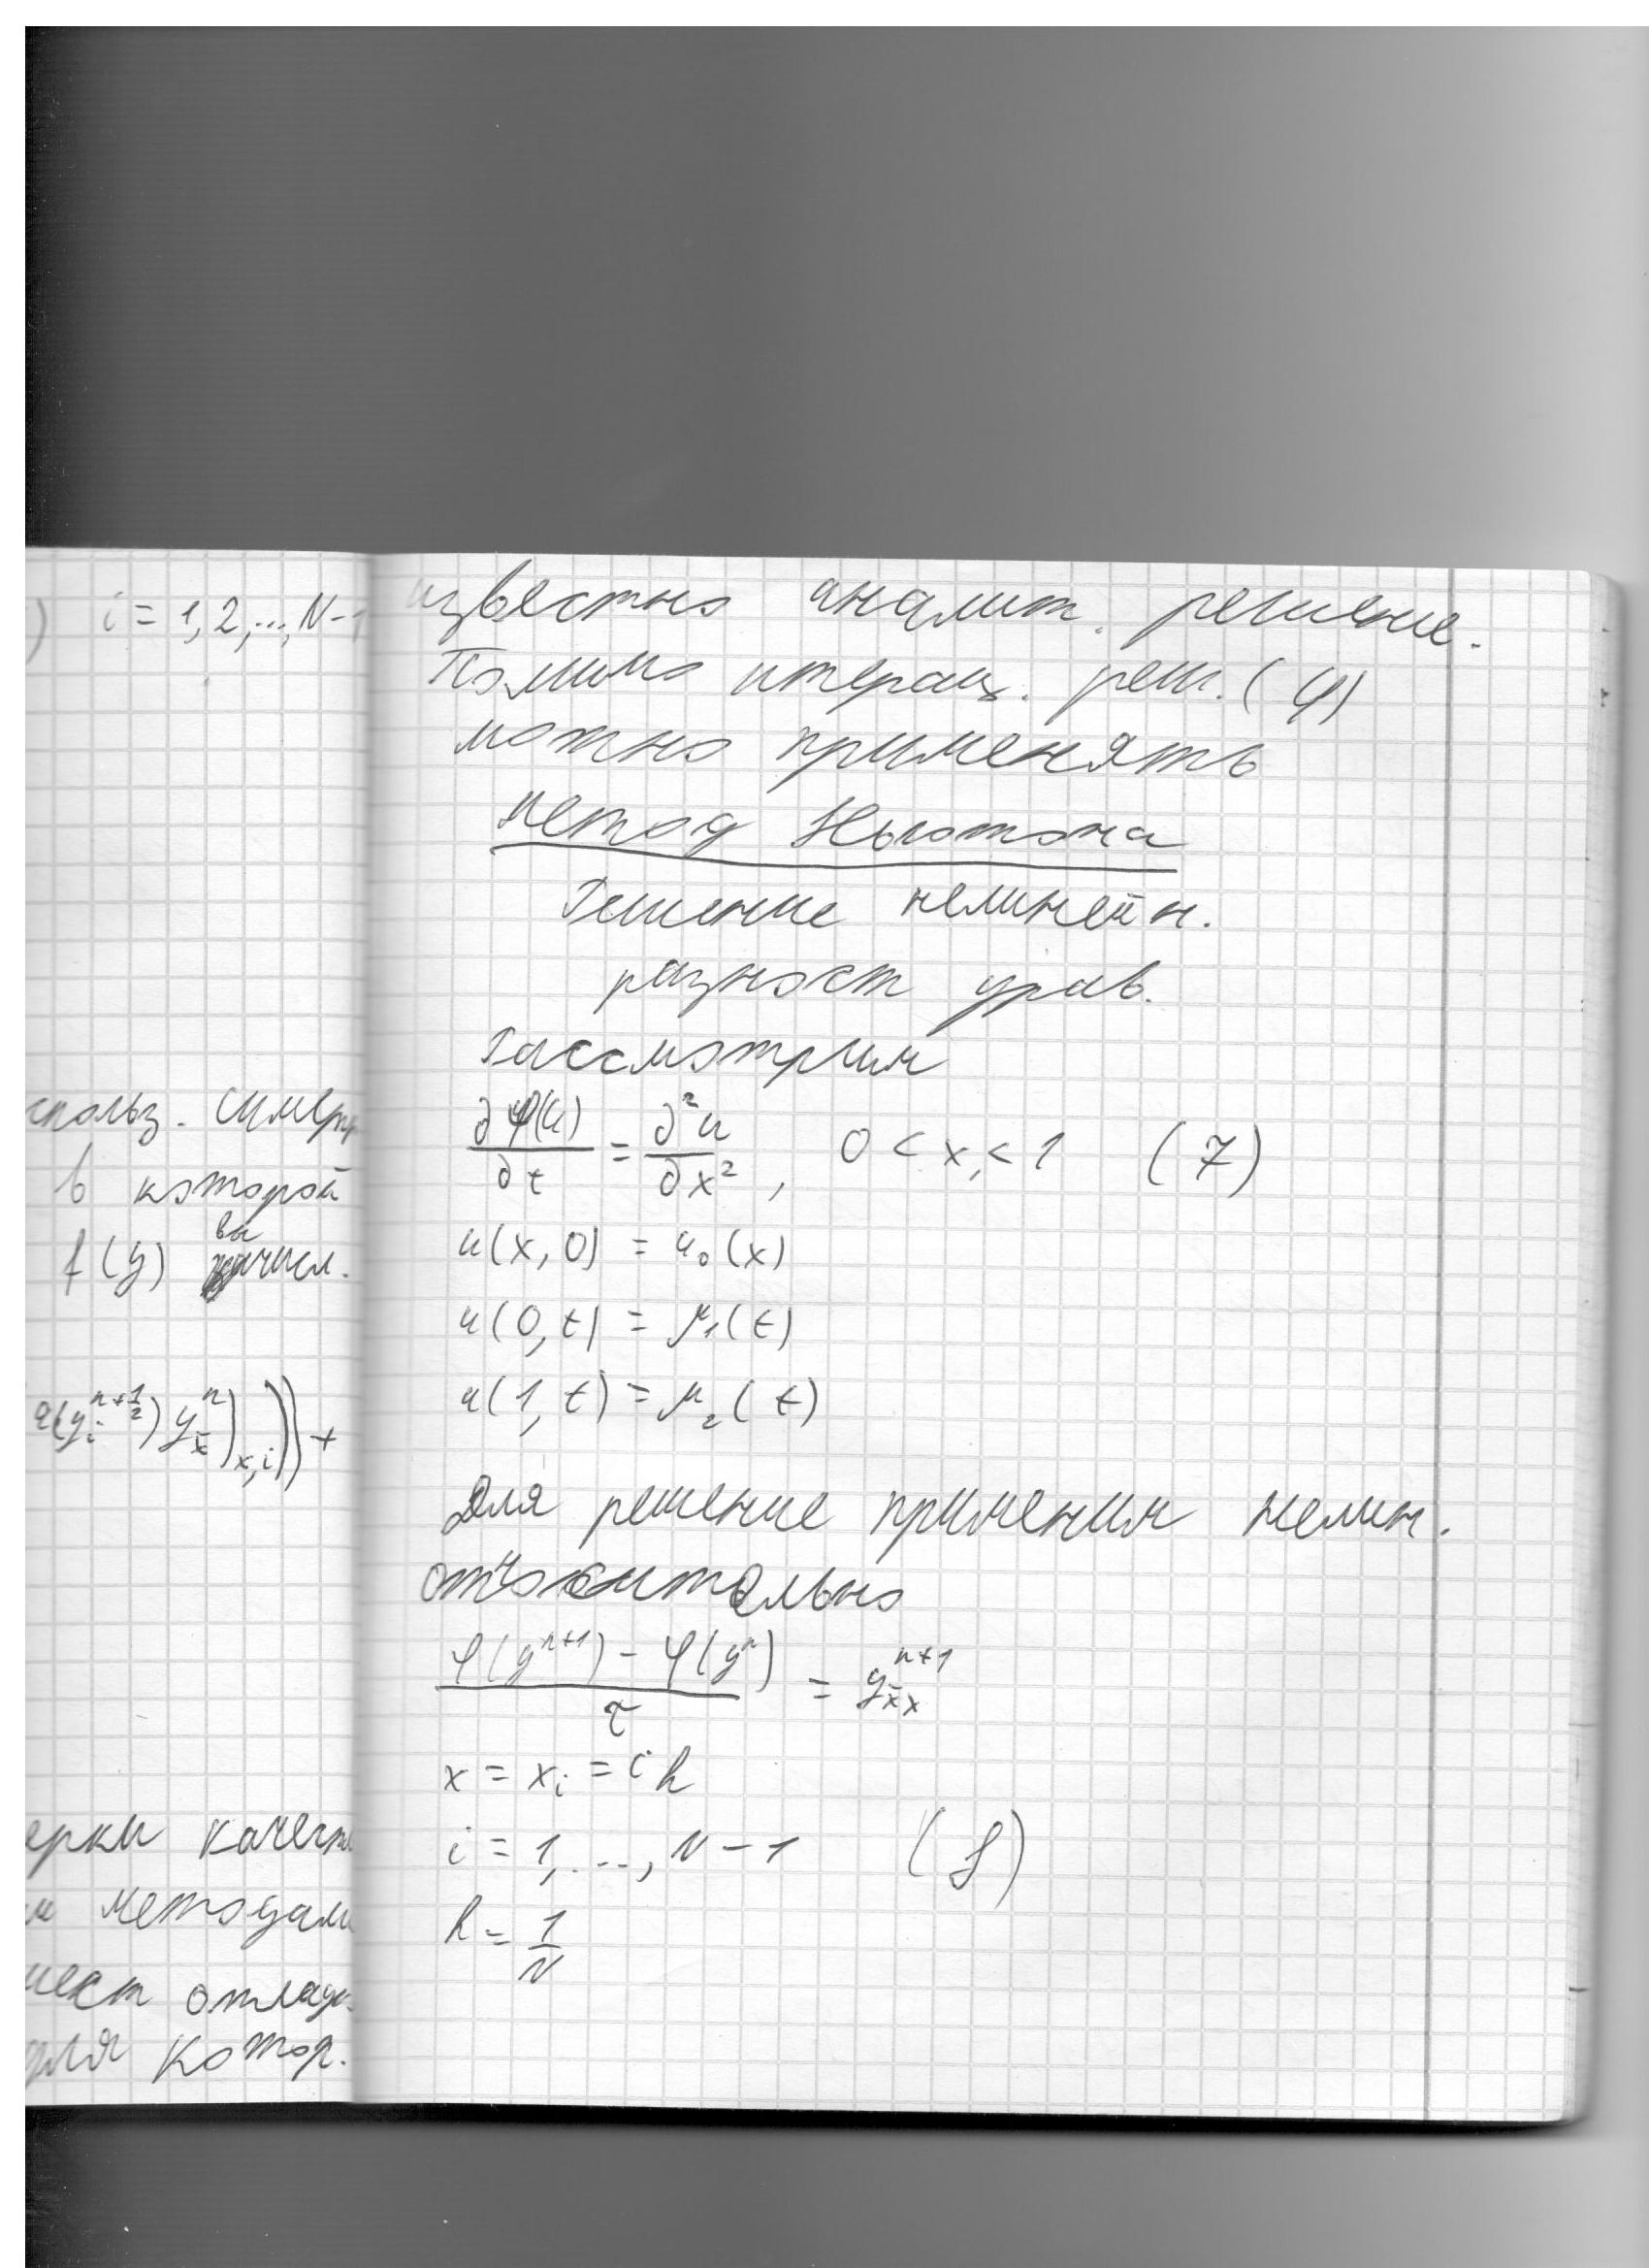 ) i = 1, 2, ..., N-1
спольз. симетр
в которой
вы
f(y) числ.
a(y_i^{n+1/2}) y_{x̄}^n)_{x,i})) +
ерки качеств
и методами
мект отладк
для котор.
известно аналит. решение.
Помимо итерац. реш. (4)
можно применять
метод Ньютона
Решение нелинейн.
разност урав.
Рассмотрим
∂φ(u)/∂t = ∂²u/∂x², 0 < x < 1 (7)
u(x, 0) = u₀(x)
u(0, t) = μ₁(t)
u(1, t) = μ₂(t)
Для решение применим нелин.
относительно
(φ(y^{n+1}) - φ(y^n))/τ = y_{x̄x}^{n+1}
x = x_i = i h
i = 1, ..., N-1 (8)
h = 1/N